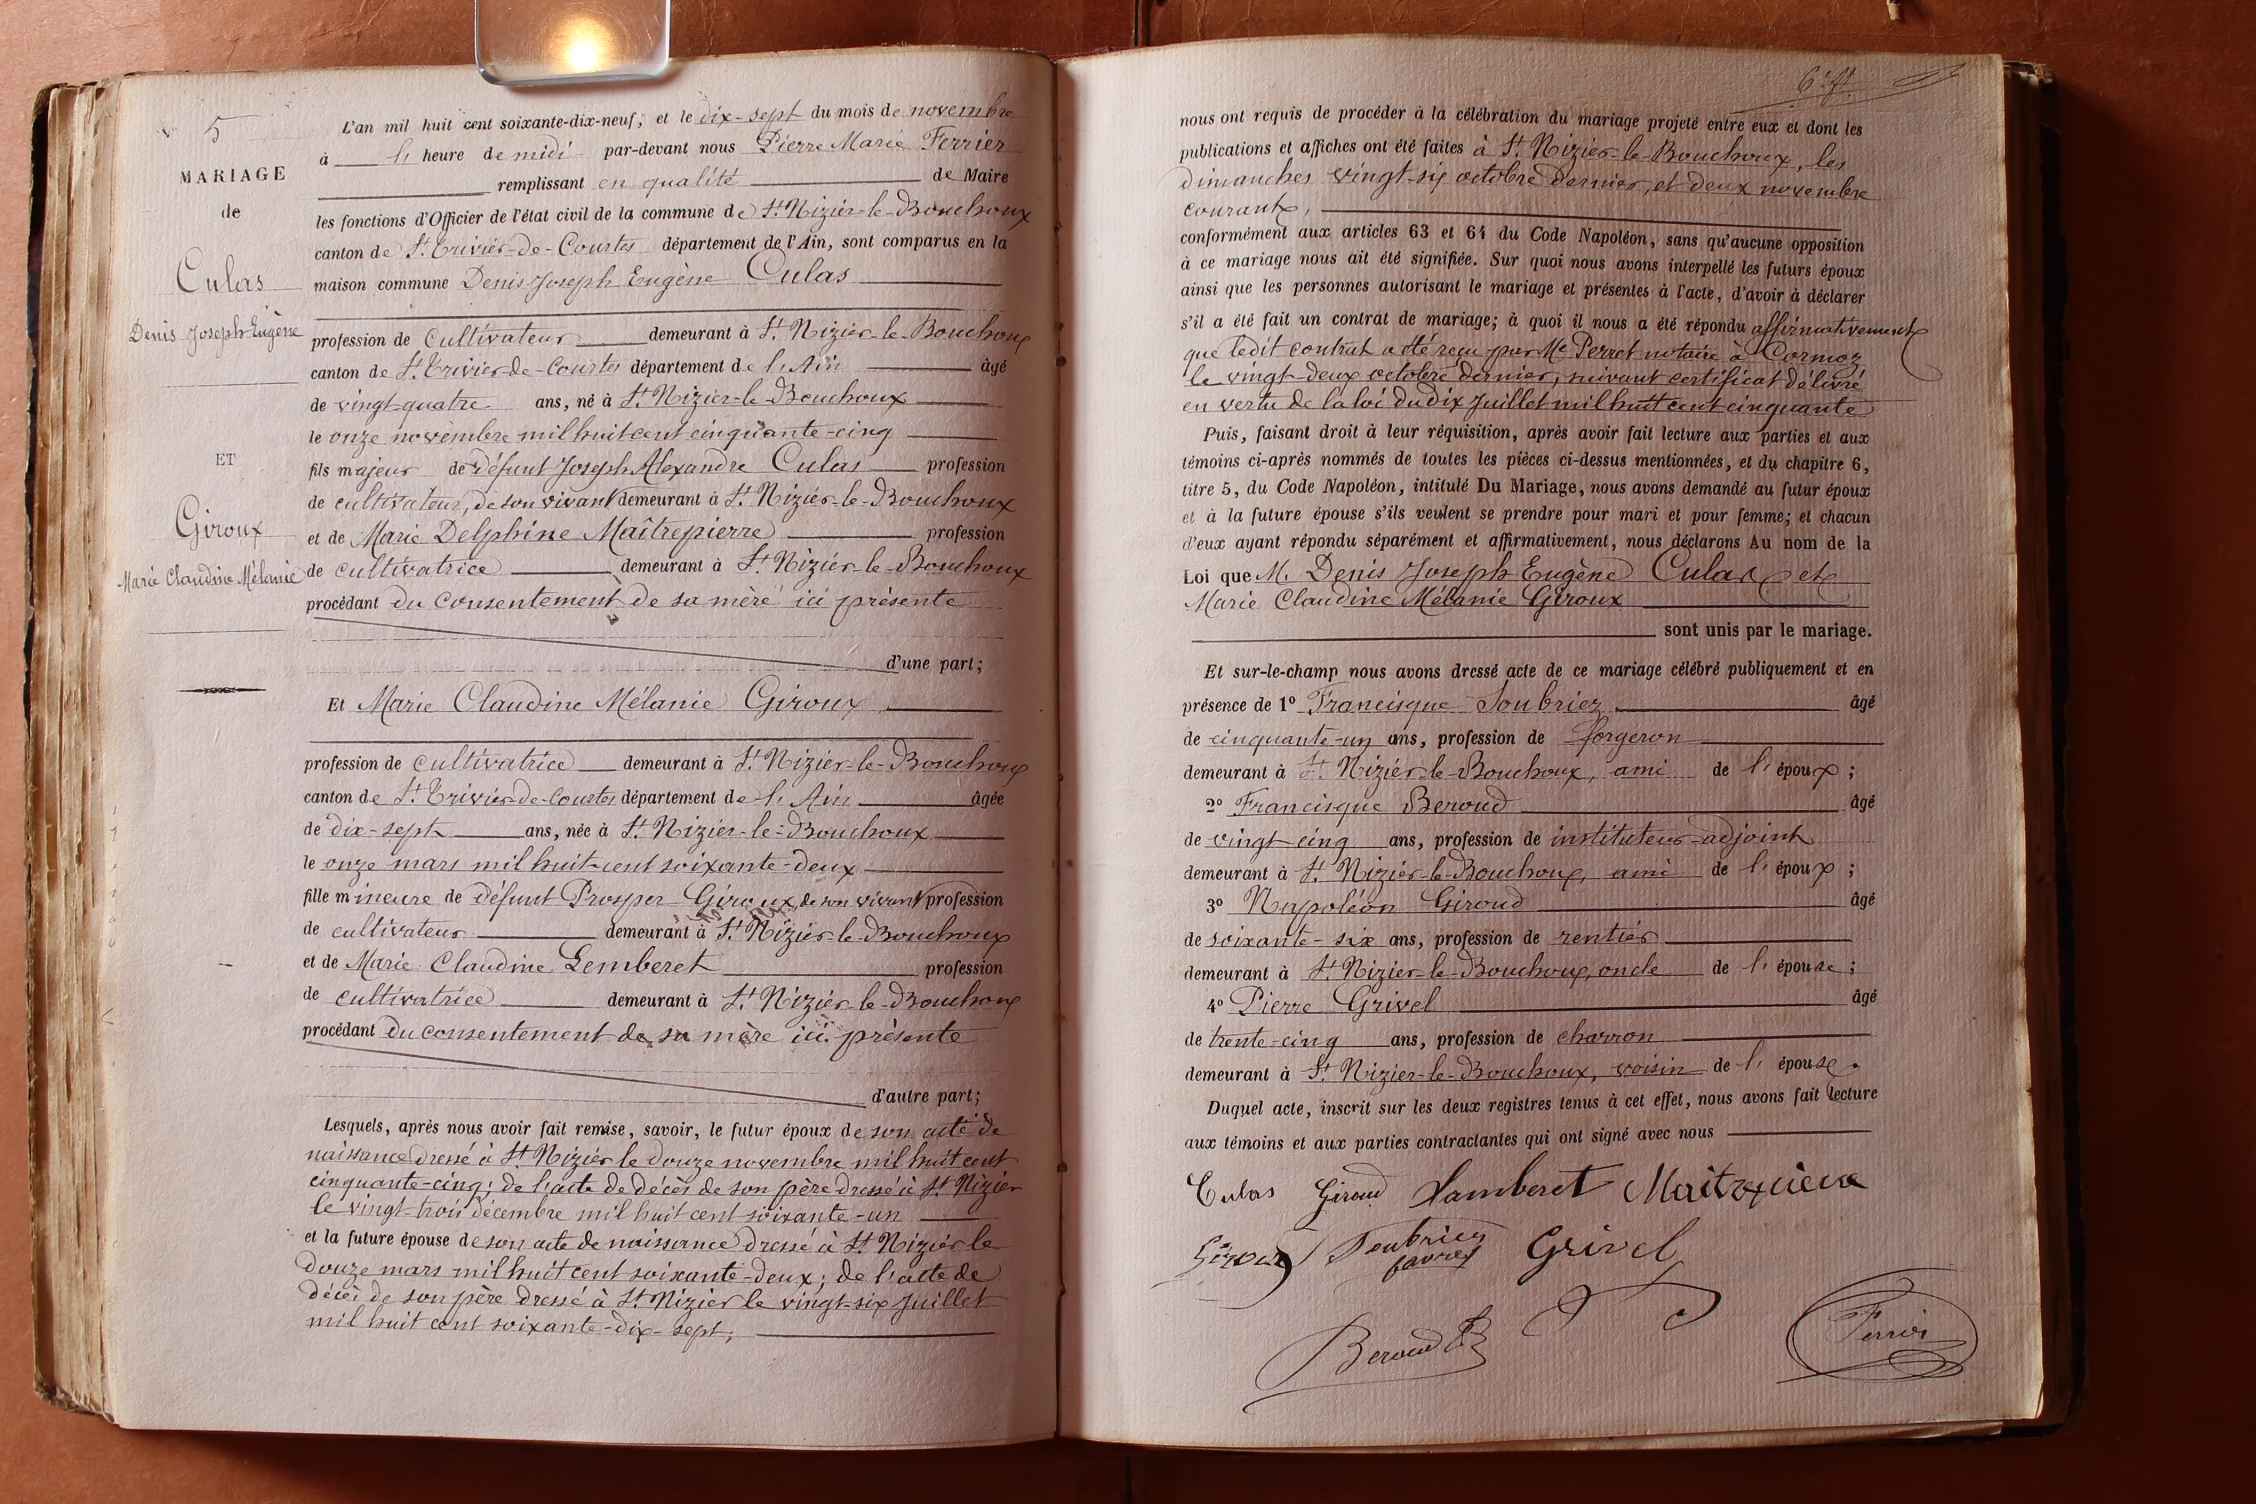 No 5
MARIAGE
de
Culas
Denis Joseph Eugène
ET
Giroux
Marie Claudine Mélanie
L'an mil huit cent soixante-dix-neuf; et le dix-sept du mois de novembre
à l' heure de midi par-devant nous Pierre Marie Ferrier
remplissant en qualité de Maire
les fonctions d'Officier de l'état civil de la commune de St Nizier-le-Bouchoux
canton de St Trivier-de-Courtes département de l'Ain, sont comparus en la
maison commune Denis Joseph Eugène Culas
profession de cultivateur demeurant à St Nizier-le-Bouchoux
canton de St Trivier-de-Courtes département de l'Ain âgé
de vingt-quatre ans, né à St Nizier-le-Bouchoux
le onze novembre mil huit cent cinquante-cinq
fils majeur de défunt Joseph Alexandre Culas profession
de cultivateur, de son vivant demeurant à St Nizier-le-Bouchoux
et de Marie Delphine Maîtrepierre profession
de cultivatrice demeurant à St Nizier-le-Bouchoux
procédant du consentement de sa mère ici présente
d'une part;
Et Marie Claudine Mélanie Giroux
profession de cultivatrice demeurant à St Nizier-le-Bouchoux
canton de St Trivier-de-Courtes département de l'Ain âgée
de dix-sept ans, née à St Nizier-le-Bouchoux
le onze mars mil huit-cent soixante-deux
fille mineure de défunt Prosper Giroux, de son vivant profession
de cultivateur demeurant à St Nizier-le-Bouchoux
et de Marie Claudine Lemberet profession
de cultivatrice demeurant à St Nizier-le-Bouchoux
procédant du consentement de sa mère ici présente
d'autre part;
Lesquels, après nous avoir fait remise, savoir, le futur époux de son acte de
naissance dressé à St Nizier le douze novembre mil huit cent
cinquante-cinq; de l'acte de décès de son père dressé à St Nizier
le vingt-trois décembre mil huit cent soixante-un
et la future épouse de son acte de naissance dressé à St Nizier le
douze mars mil huit cent soixante-deux; de l'acte de
décès de son père dressé à St Nizier le vingt-six Juillet
mil huit cent soixante-dix-sept;
6e ft
nous ont requis de procéder à la célébration du mariage projeté entre eux et dont les
publications et affiches ont été faites à St Nizier-le-Bouchoux, les
dimanches vingt-six octobre dernier, et deux novembre
courant,
conformément aux articles 63 et 64 du Code Napoléon, sans qu'aucune opposition
à ce mariage nous ait été signifiée. Sur quoi nous avons interpellé les futurs époux
ainsi que les personnes autorisant le mariage et présentes à l'acte, d'avoir à déclarer
s'il a été fait un contrat de mariage; à quoi il nous a été répondu affirmativement
que ledit contrat a été reçu par Me Perret notaire à Cormoz
le vingt-deux octobre dernier, suivant certificat délivré
en vertu de la loi du dix Juillet mil huit cent cinquante
Puis, faisant droit à leur réquisition, après avoir fait lecture aux parties et aux
témoins ci-après nommés de toutes les pièces ci-dessus mentionnées, et du chapitre 6,
titre 5, du Code Napoléon, intitulé Du Mariage, nous avons demandé au futur époux
et à la future épouse s'ils veulent se prendre pour mari et pour femme; et chacun
d'eux ayant répondu séparément et affirmativement, nous déclarons Au nom de la
Loi que M. Denis Joseph Eugène Culas et
Marie Claudine Mélanie Giroux
sont unis par le mariage.
Et sur-le-champ nous avons dressé acte de ce mariage célébré publiquement et en
présence de 1o Francisque Soubriez âgé
de cinquante-un ans, profession de forgeron
demeurant à St Nizier-le-Bouchoux, ami de l'époux;
2o Francisque Beroud âgé
de vingt-cinq ans, profession de instituteur-adjoint
demeurant à St Nizier-le-Bouchoux, ami de l'époux;
3o Napoléon Giroud âgé
de soixante-six ans, profession de rentier
demeurant à St Nizier-le-Bouchoux, oncle de l'épouse;
4o Pierre Grivel âgé
de trente-cinq ans, profession de charron
demeurant à St Nizier-le-Bouchoux, voisin de l'épouse.
Duquel acte, inscrit sur les deux registres tenus à cet effet, nous avons fait lecture
aux témoins et aux parties contractantes qui ont signé avec nous
Culas Giroud Lamberet
Soubriez Grivel
Beroud
Ferrier